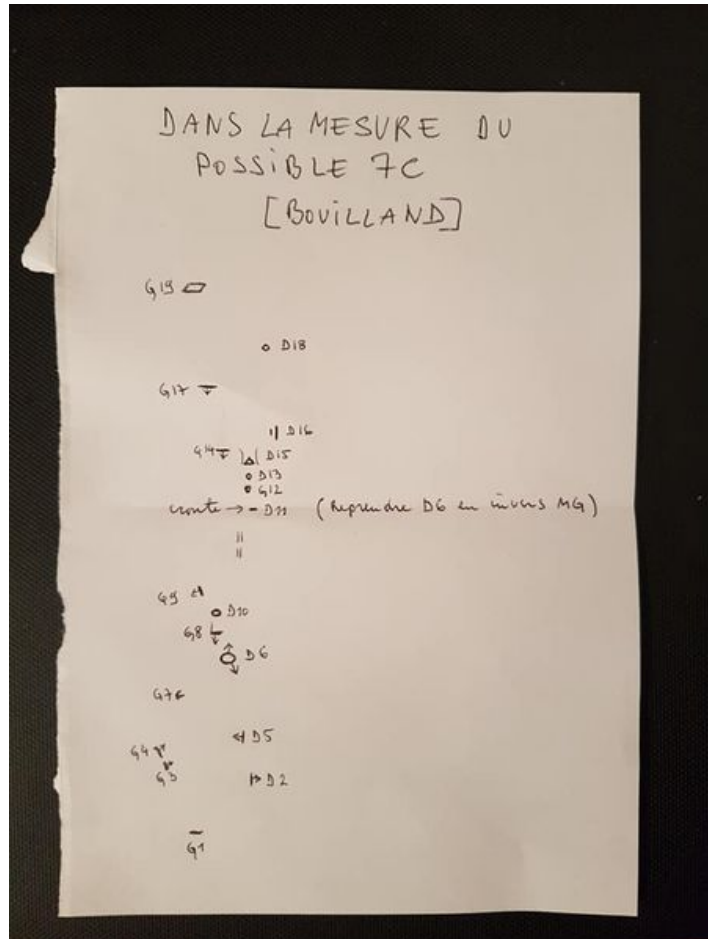 DANS LA MESURE DU
POSSIBLE 7C
[BOUILLAND]
G19
D18
G17
D16
G14 D15
D13
G12
croute → - D11 (Reprendre D6 en invers MG)
G9
D10
G8
D6
G7
D5
G4
G3 D2
G1